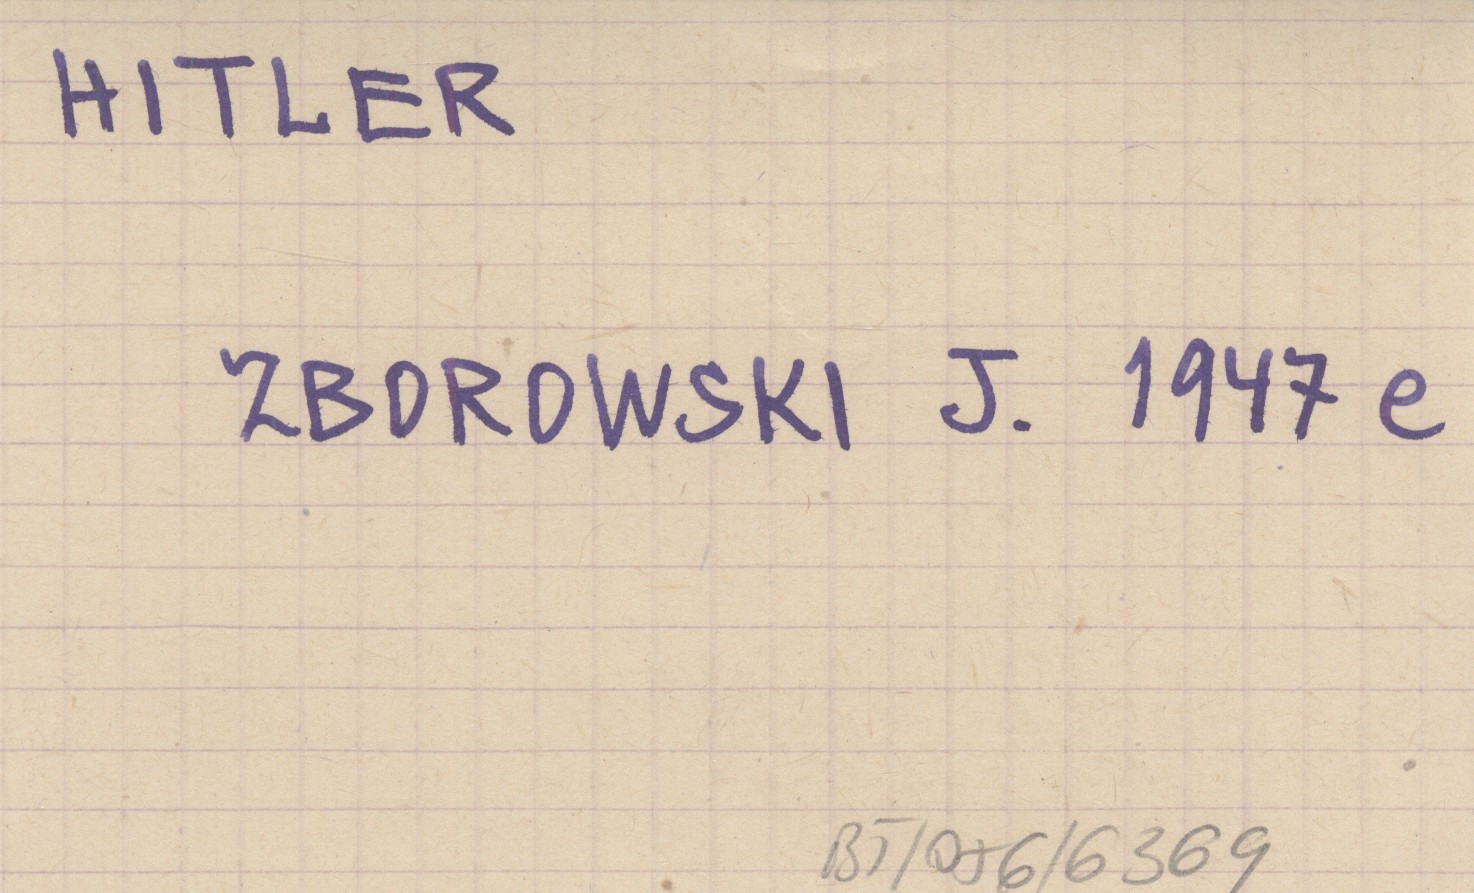 HITLER
ZBOROWSKI J. 1947 e
6369